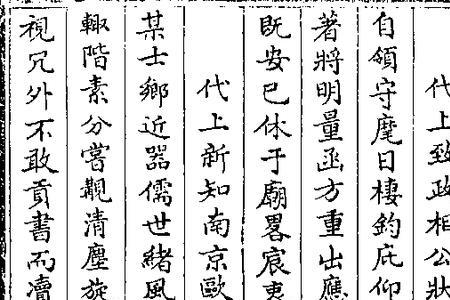 代上致政相公狀
自領守麾日棲鈞庇仰
著將明量函方重出應
既安已休于廟畧宸
代上新知南京歐
某士鄉近器儒世緒風
輙階素分嘗覯清塵旋
視冗外不敢貢書而瀆